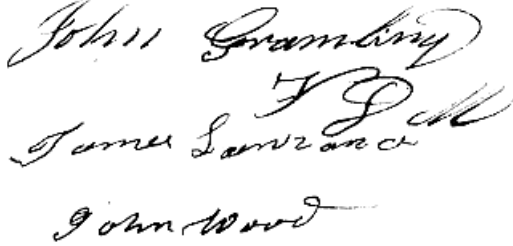 John Grambling
V D M
James Lawrance
John Wood